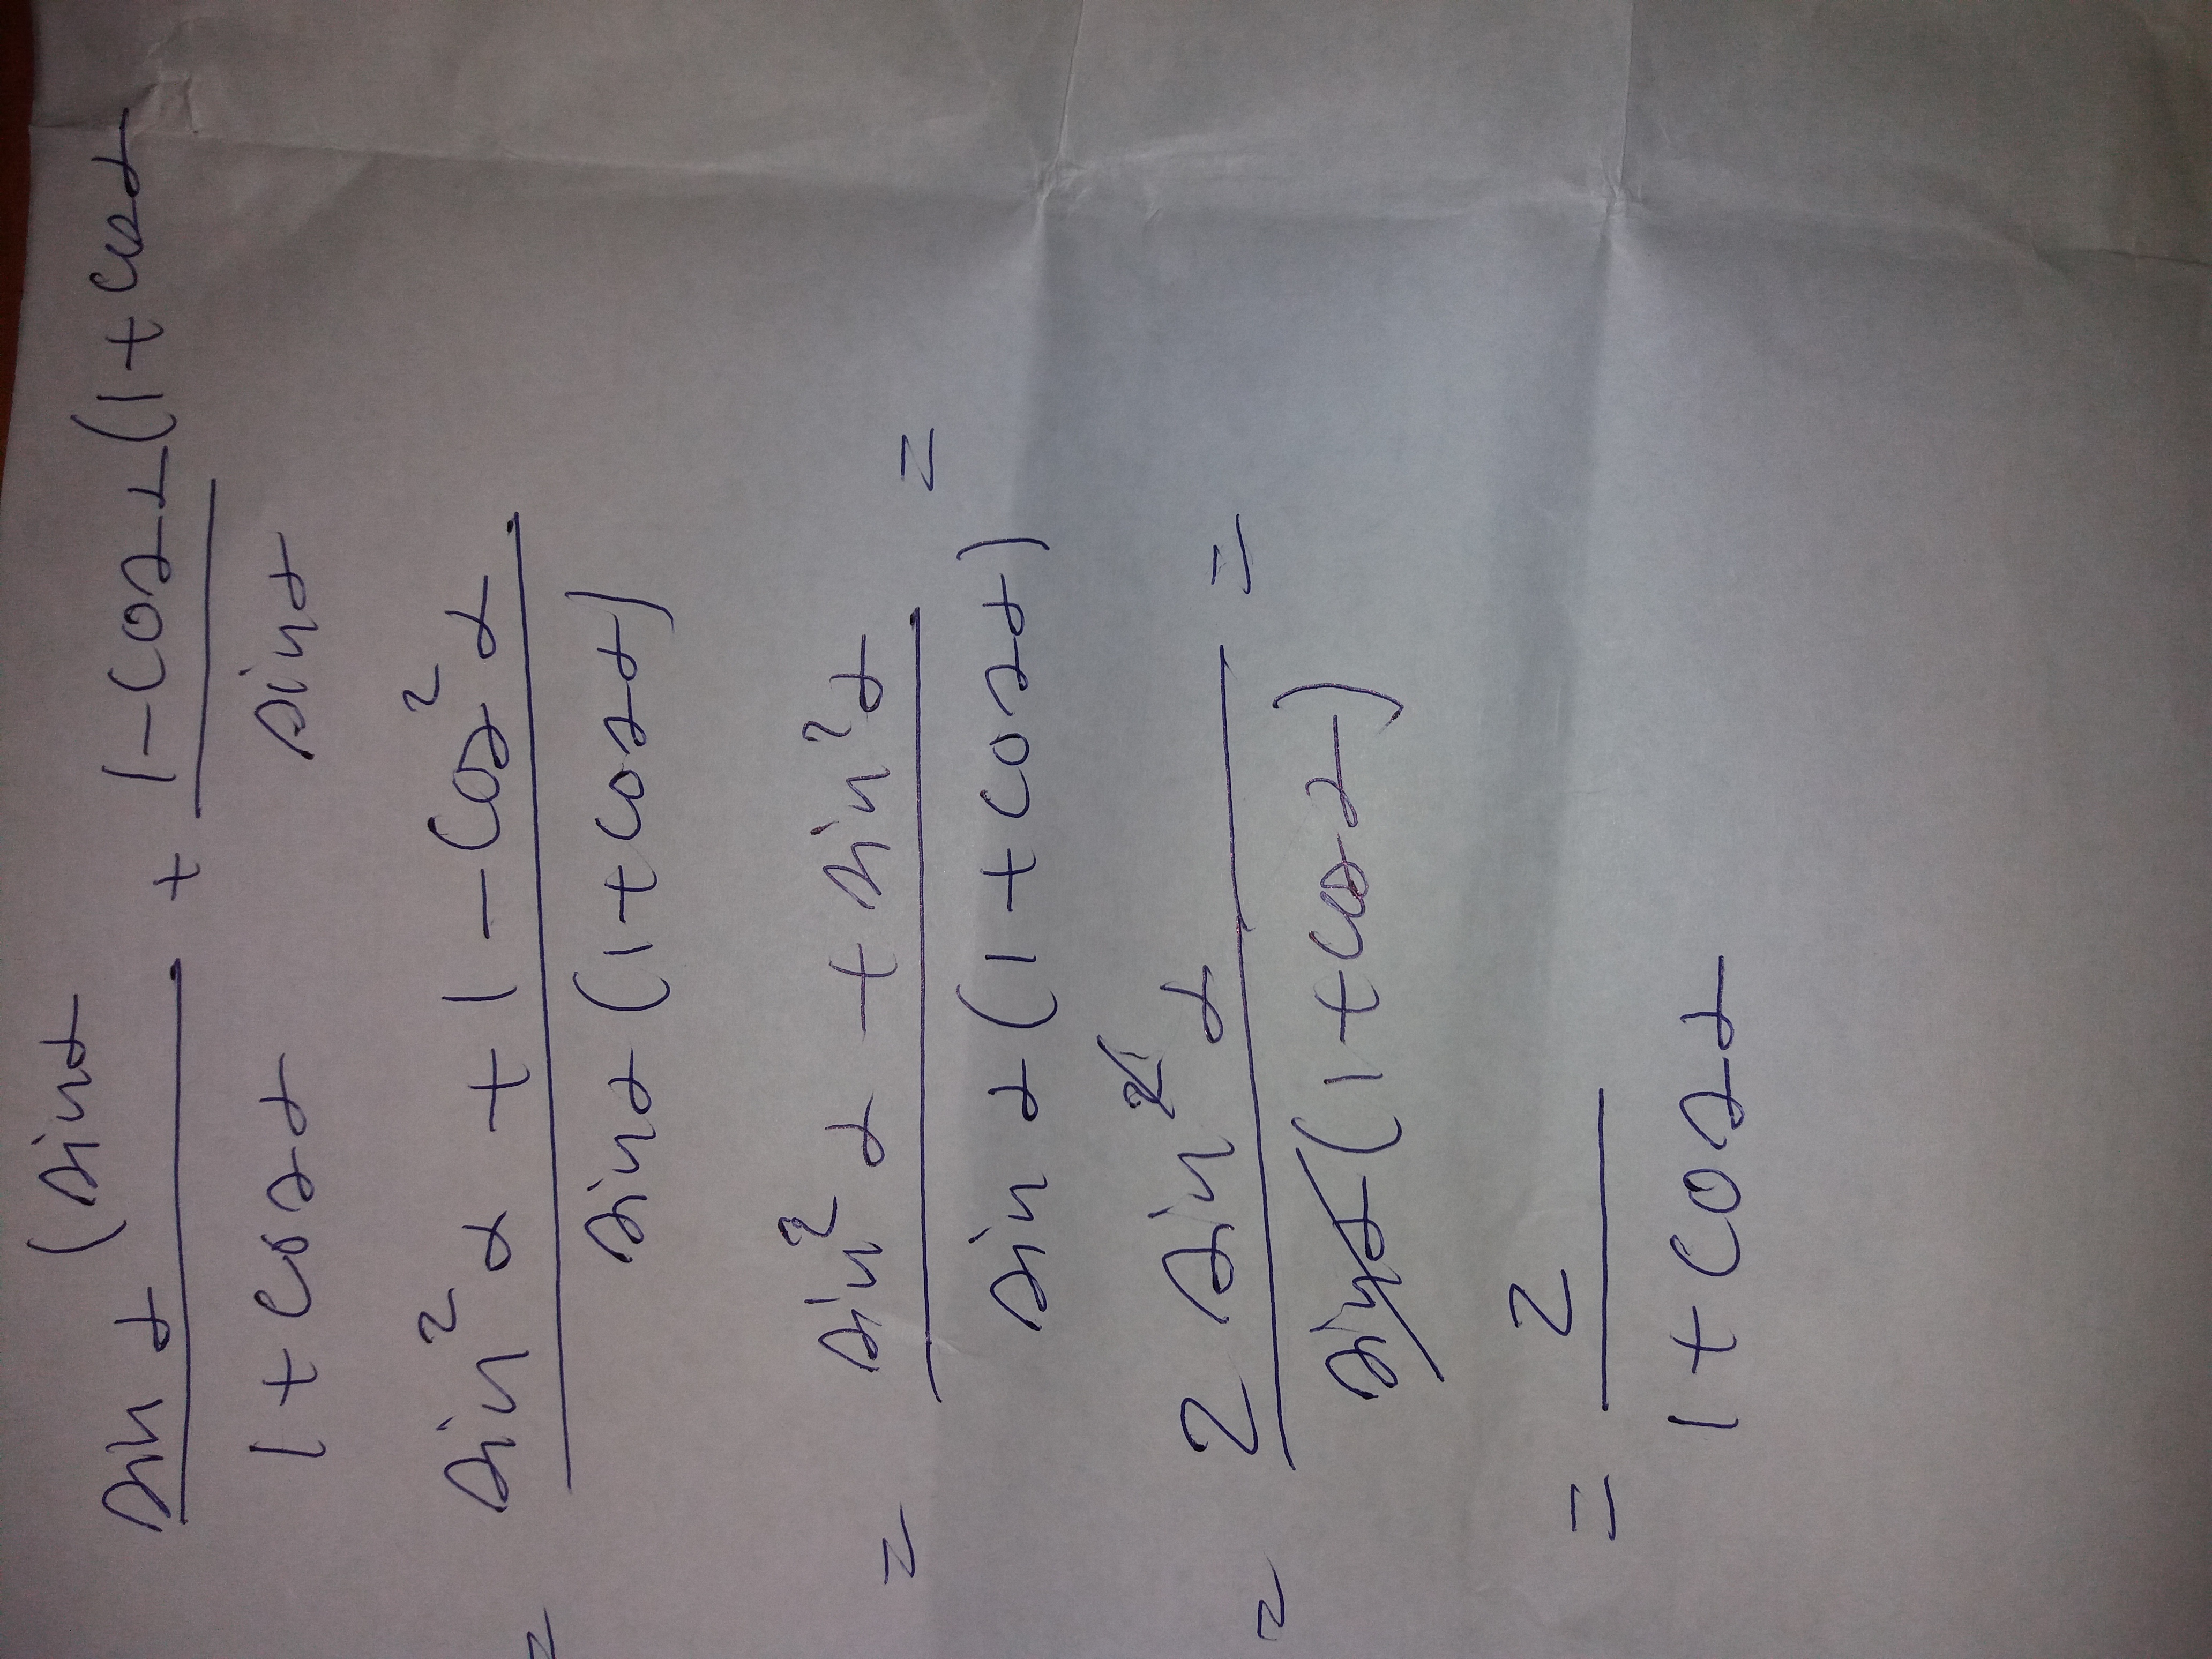 sin α (sin α + 1 - cos α (1 + cos α
1 + cos α sin α
= sin² α + 1 - cos² α
sin α (1 + cos α)
= sin² α + sin² α =
sin α (1 + cos α)
= 2 sin² α =
sin α (1 + cos α)
= 2
1 + cos α